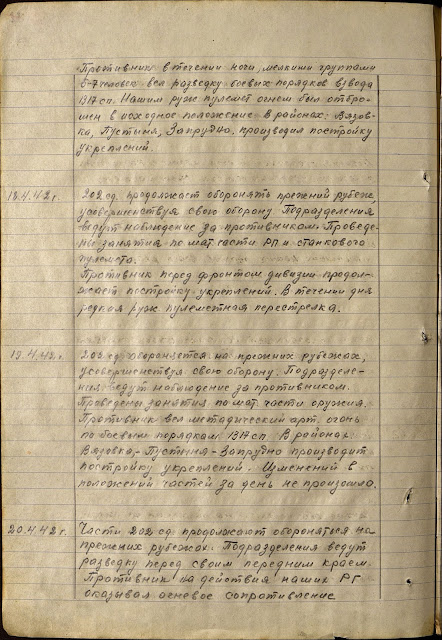 Противник в течении ночи, мелкими группами
5-7 человек вел разведку боевых порядков взвода
1317 сп. Нашим руж. пулемет огнем был отбро-
шен в исходное положение. В районах: Вязов-
ка, Пустыня, Запрудно, производил постройку
укреплений.
18.4.42г. 202 сд. продолжает оборонять прежний рубеж,
усовершенствуя свою оборону. Подразделения
ведут наблюдение за противником. Проведе-
ны занятия по мат.части РП и станкового
пулемета.
Противник перед фронтом дивизии продол-
жает постройку укреплений. В течении дня
редкая руж. пулеметная перестрелка.
19.4.42г. 202 сд. обороняется на прежних рубежах,
усовершенствуя свою оборону. Подразделе-
ния ведут наблюдение за противником.
Проведены занятия по мат. части оружия.
Противник вел методический арт. огонь
по боевым порядкам 1317 сп. В районах
Вязовка,- Пустыня - Запрудно производит
постройку укреплений. Изменений в
положений частей за день не произошло.
20.4.42г. Части 202 сд. продолжают обороняться на
прежних рубежах. Подразделения ведут
разведку перед своим передним краем.
Противник на действия наших РГ
оказывал огневое сопротивление